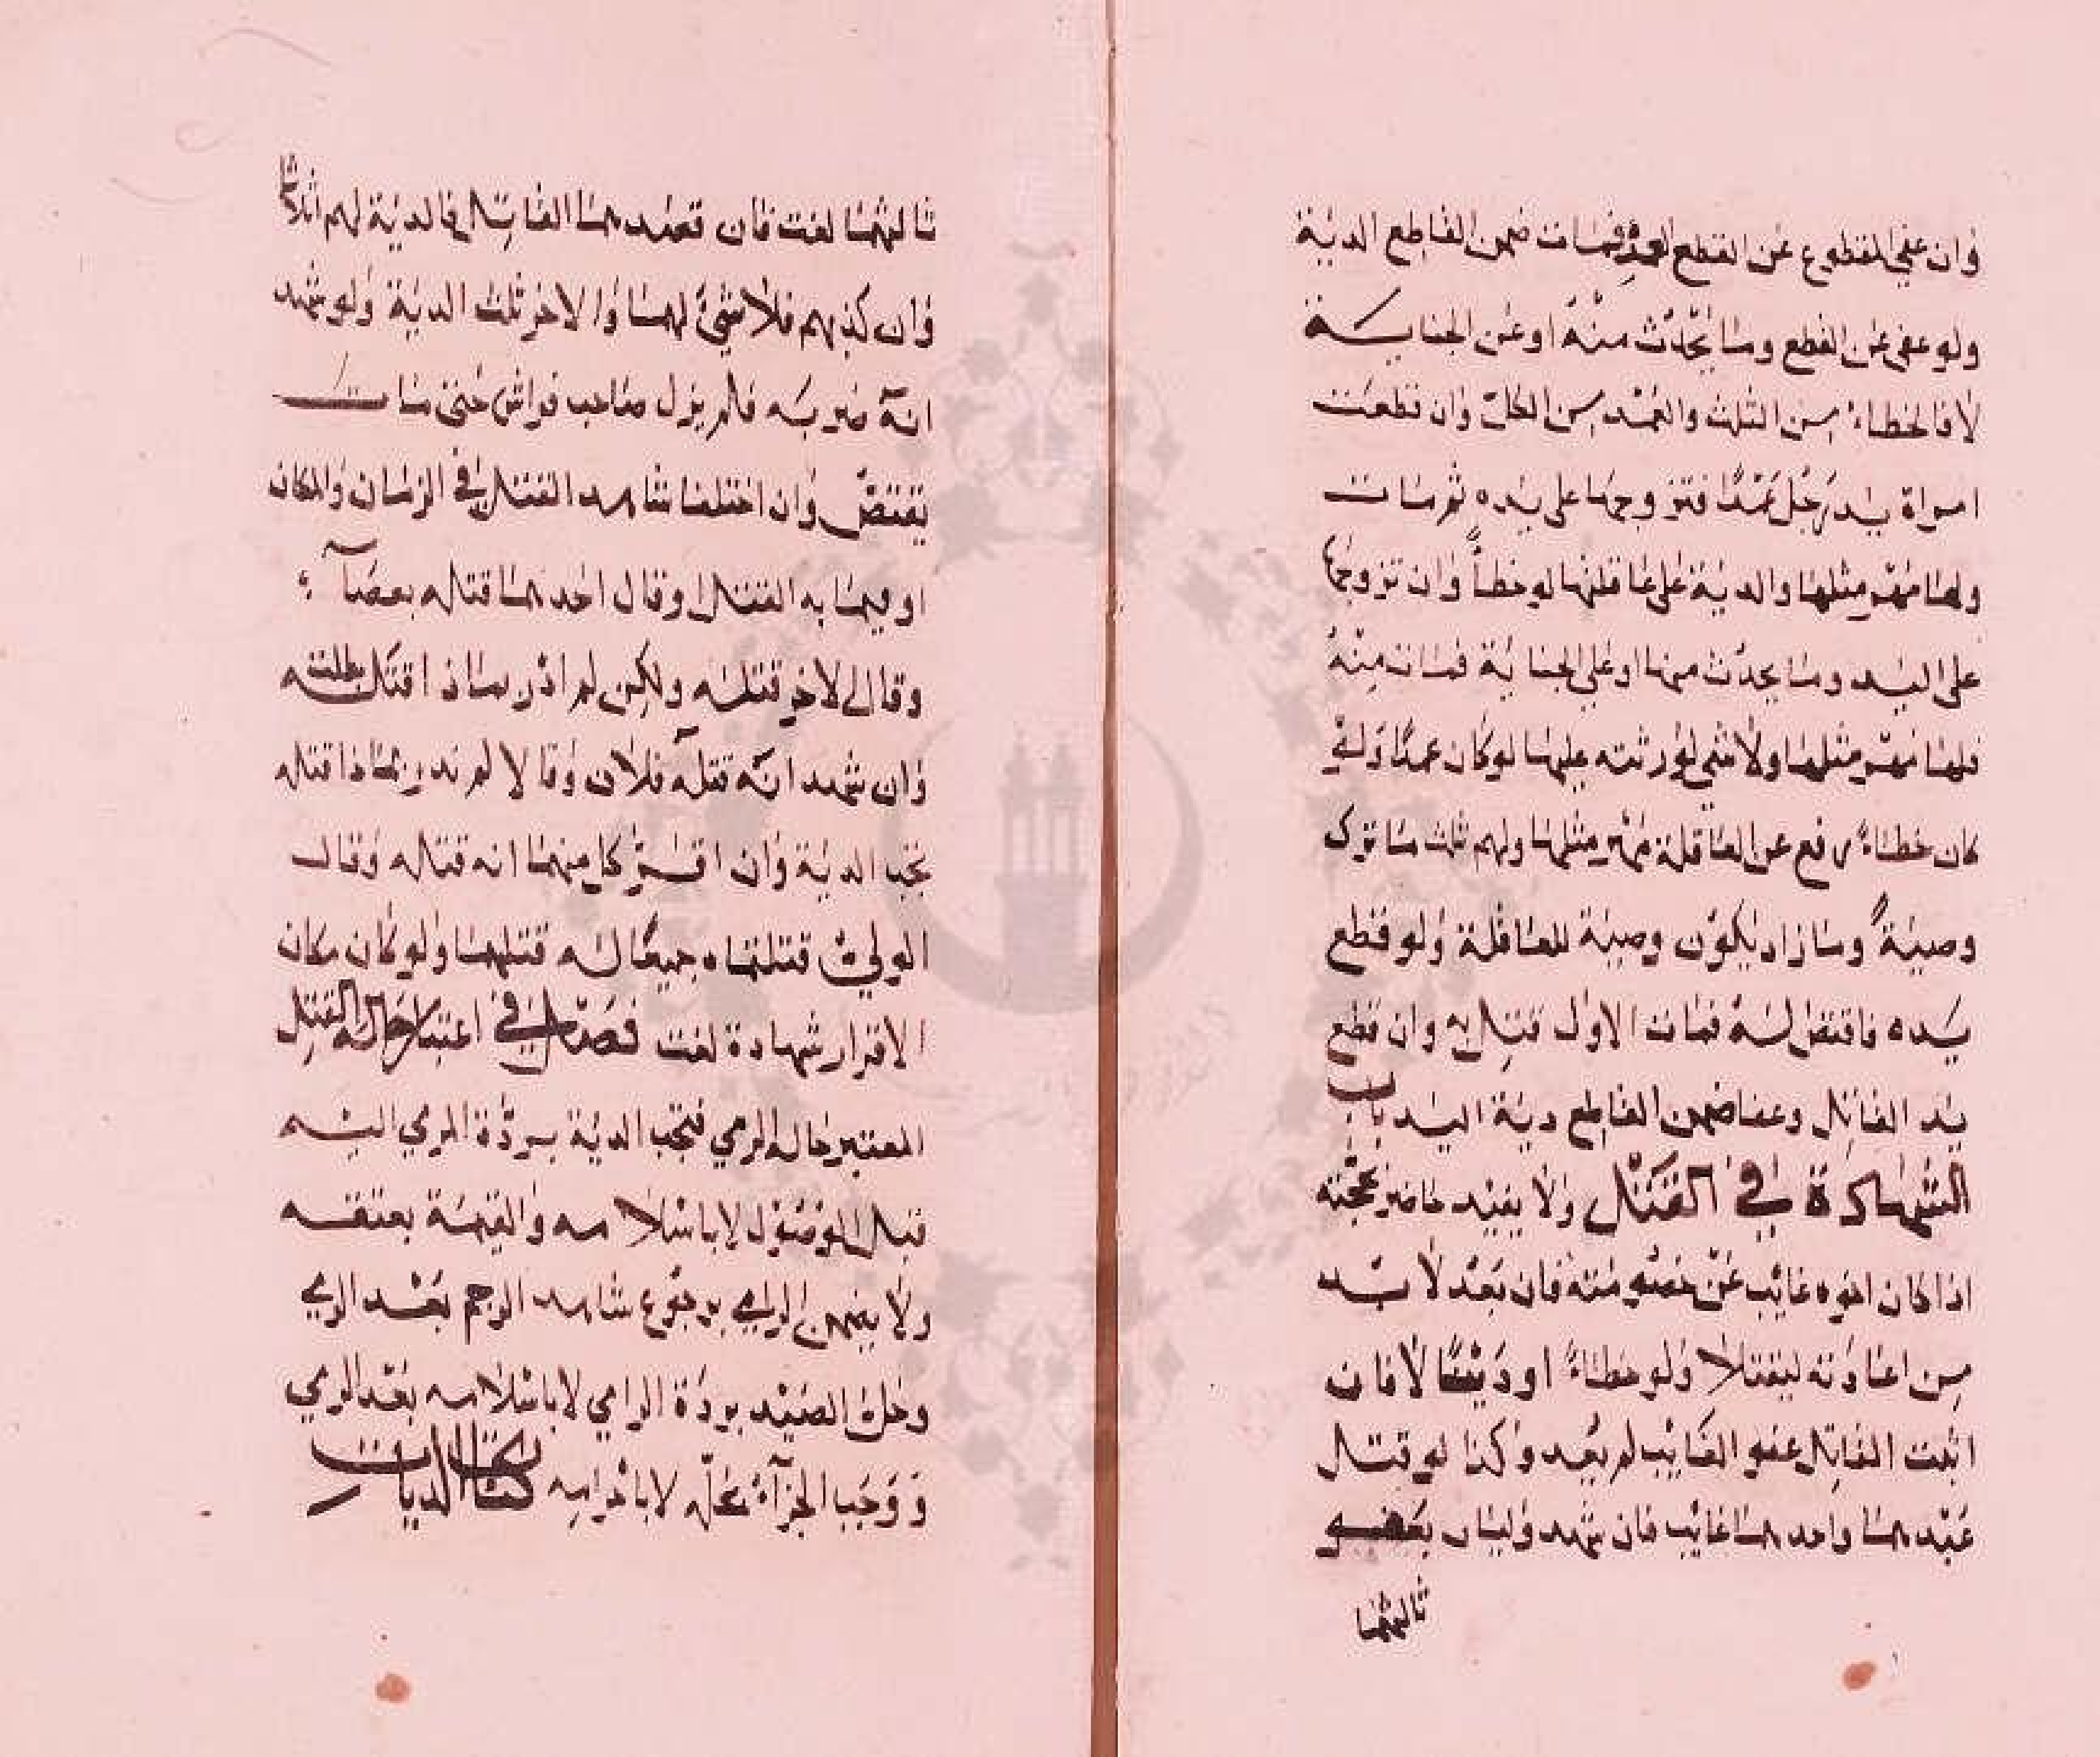 وان عفى المقطوع عن القطع العمد فمات ضمن القاطع الدية
ولو عفى عن القطع وما يحدث منه او عن الجناية
لا فالخطاء من الثلث والعمد من الكل وان قطعت
امراة يد رجل عمدا فتزوجها على يده ثم مات
ولها مهر مثلها والدية على عاقلتها لو خطأ وان تزوجها
على اليد وما يحدث منها او على الجناية فمات منه
فلها مهر مثلها ولا شي لورثته عليها لو كان عمدا ولو
كان خطاء رفع عن العاقلة مهر مثلها ولهم ثلث ما ترك
وصية وما زاد يكون وصية للعاقلة ولو قطع
يده فاقتص له فمات الاول قتل به وان قطع
يد القاتل وعفا ضمن القاطع دية اليد باب
الشهادة في القتل ولا يقيد حاضر بحجته
اذا كان اخوه غايب عن خصومته فان يعد لا بد
من اعادته ليقتلا ولو خطاء او دينا لا فان
اثبت القاتل عفو الغايب لم يعد وكذا لو قتل
عبدهما واحدهما غايب فان شهد وليان بعفو
ثالثهما
ثالثهما لغت فان صدقهما القاتل فالدية لهم اثلاثا
وان كذبهم فلا شئ لهما وللاخر ثلث الدية ولو شهد
انه ضربه فلم يزل صاحب فراش حتى مات
يقتص وان اختلفا شاهدا القتل في الزمان والمكان
او فيما به القتل او قال احدهما قتله بعصا
وقال الاخر قتله ولكن لم ادر بماذا قتل بطلت
وان شهد انه قتله فلان وقالا لم ندر بماذا قتله
تجب الدية وان اقر كل منهما انه قتله وقال
الولي قتلتماه جميعا له قتلهما ولو كان مكان
الاقرار شهادة لغت فصل في اعتبار حالة القتل
المعتبر حالة الرمي فتجب الدية بردة المرمي اليه
قبل الوصول لا باسلامه والقيمة بعتقه
ولا يضمن الرامي برجوع شاهد الرجم بعد الرمي
وحل الصيد بردة الرامي لا باسلامه بعد الرمي
ووجب الجزآء بحله لا باحرامه كتاب الديات